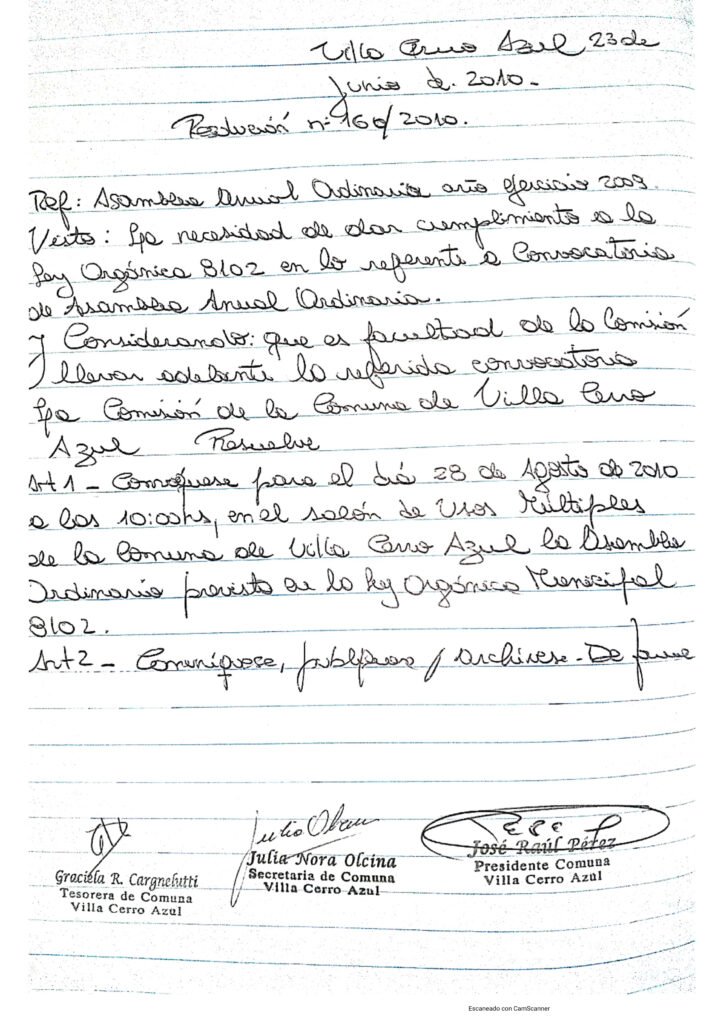 Villa Cerro Azul 23 de
Junio de 2010.-
Resolución n° /2010.
Ref: Asamblea Anual Ordinaria año ejercicio 2009.
Visto: La necesidad de dar cumplimiento a la
Ley Orgánica 8102 en lo referente a Convocatoria
de Asamblea Anual Ordinaria.
y Considerando: que es facultad de la Comisión
llevar adelante la referida convocatoria
La Comisión de la Comuna de Villa Cerro
Azul Resuelve
Art 1 - Convóquese para el día 28 de Agosto de 2010
a las 10:00hs, en el salón de Usos Múltiples
de la Comuna de Villa Cerro Azul la Asamblea
Ordinaria prevista en la Ley Orgánica Municipal
8102.
Art 2 - Comuníquese, publíquese y archívese - De forma
Julia Olcina
José Raúl Pérez
Julia Nora Olcina
Presidente Comuna
Graciela R. Cargnelutti
Secretaria de Comuna
Villa Cerro Azul
Tesorera de Comuna
Villa Cerro Azul
Villa Cerro Azul
Escaneado con CamScanner